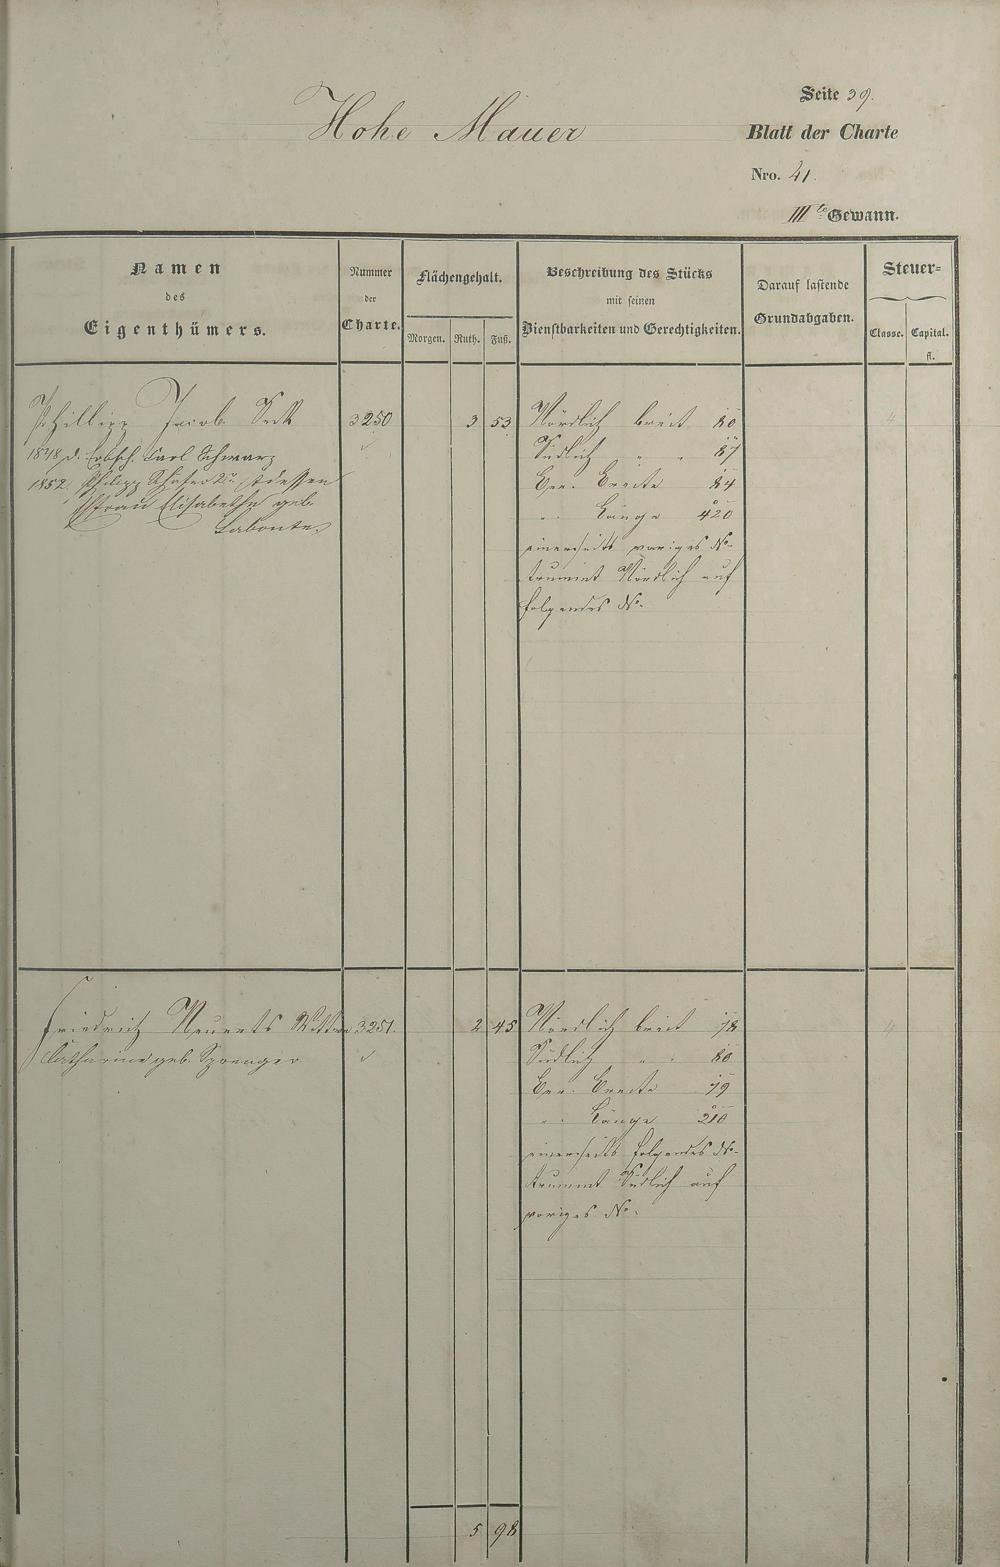 Hohe Mauer
Seite 39.
Blatt der Charte
Nro. 41.
IIIte Gewann.
Namen
des
Eigenthümers.
Nummer
der
Charte.
Flächengehalt.
Morgen. Ruth. Fuß.
Beschreibung des Stücks
mit seinen
Dienstbarkeiten und Gerechtigkeiten.
Darauf lastende
Grundabgaben.
Steuer=
Classe. Capital.
fl.
Phillipp Jacob 3250 3 53 Nördlich breit 80
1848 d. Erbsch. Carl Schwarz Südlich " " 87
1852. Philipp Schäfer 2r. u. dessen Ger. Breite 84
Ehefrau Elisabetha geb. " Länge 420
Labonte. einerseits voriges No.
Nördlich auf
folgendes No.
4
Friedrich Wittwe 3251. 2 45 Nördlich breit 78
Catharina geb. Sprenger Südlich " " 80
Ger. Breite 79
" Länge 310
einerseits folgendes No.
Südlich auf
voriges No.
4
5 98